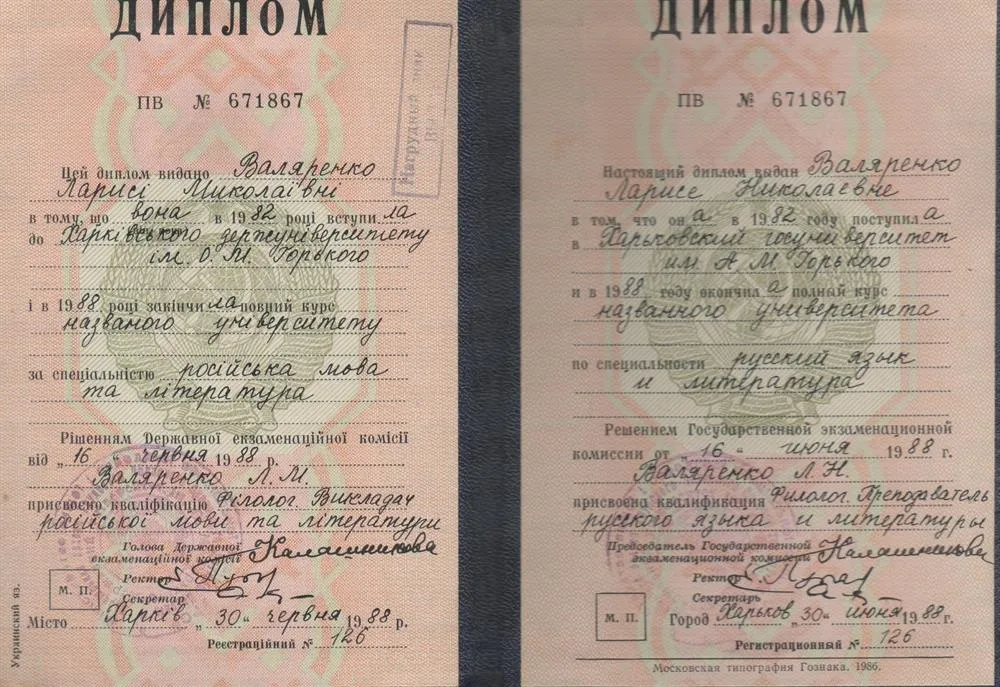 ДИПЛОМ
ПВ № 671867
Нагрудный знак
Цей диплом видано Валяренко
Ларисі Миколаївні
в тому, що вона в 1982 році вступила
до Харківського держуніверситету
ім. О. М. Горького
і в 1988 році закінчила повний курс
названого університету
за спеціальністю російська мова
та література
Рішенням Державної екзаменаційної комісії
від „16“ червня 1988 р.
Валяренко Л. М.
присвоєно кваліфікацію Філолог. Викладач
російської мови та літератури
Голова Державної
екзаменаційної комісії Калашникова
Ректор
Секретар
М. П.
Місто Харків „30“ червня 1988 р.
Реєстраційний № 126
Украинский яз.
ДИПЛОМ
ПВ № 671867
Настоящий диплом выдан Валяренко
Ларисе Николаевне
в том, что она в 1982 году поступила
в Харьковский госуниверситет
им А М. Горького
и в 1988 году окончила полный курс
названного университета
по специальности русский язык
и литература
Решением Государственной экзаменационной
комиссии от „16“ июня 1988 г.
Валяренко Л. Н.
присвоена квалификация Филолог. Преподаватель
русского языка и литературы
Председатель Государственной
экзаменационной комиссии Калашникова
Ректор
Секретарь
М. П.
Город Харьков „30“ июня 1988 г.
Регистрационный № 126
Московская типография Гознака. 1986.